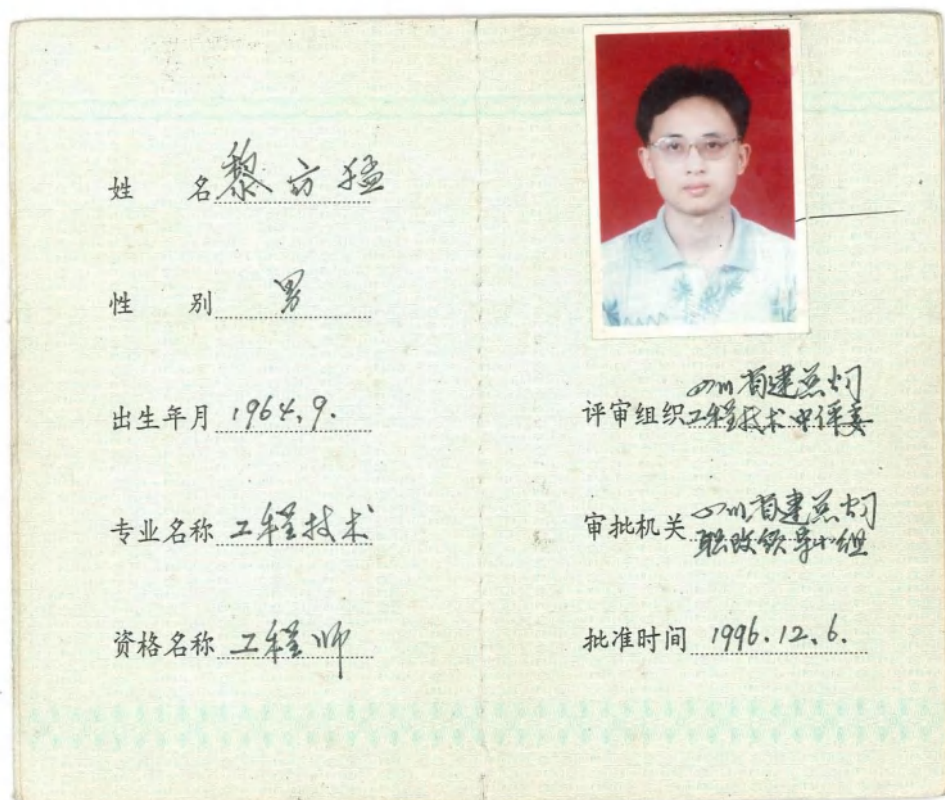 姓名 黎方猛
性别 男
出生年月 1964.9.
专业名称 工程技术
资格名称 工程师
评审组织 四川省建总公司
工程技术中评委
审批机关 四川省建总公司
职改领导小组
批准时间 1996.12.6.